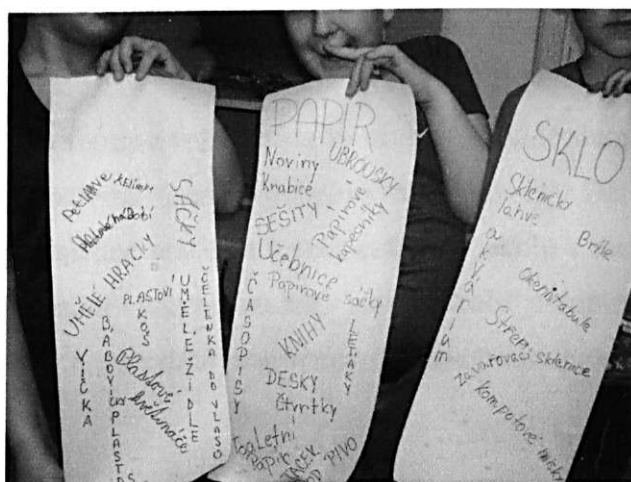 SÁČKY
UMĚLÉ HRAČKY
PLASTOVÝ
KOŠ
VÍČKA
Plastové
květináče
UMĚLÉ ŽIDLE
ČELENKA DO VLASŮ
PAPÍR
Noviny
UBROUSKY
Krabice
SEŠITY
Papírové
kapesníky
Učebnice
Papírové sáčky
ČASOPISY
KNIHY
LETÁKY
DESKY
Čtvrtky
Toaletní
papír
TÁCEK
POD PIVO
SKLO
Skleničky
lahve
Brýle
akvárium
Okenní tabule
Střepy
Zavařovací sklenice
Kompotové misky